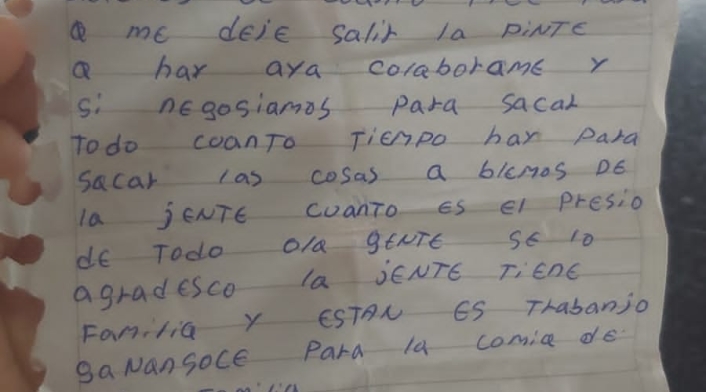 Q ME DEJE Salir la PINTE
Q hay aya colaboraME Y
Si NEgosiamos Para Sacar
Todo cuanTo TiEMPo hay Para
Sacar las cosas a blEMos DE
la jENTE CUANTO ES El PrEsio
dE Todo ola gENTE SE lo
agradEsco la jENTE TiENE
FaMilia Y ESTAN ES Trabanjo
gaNaNgocE Para la comia dE